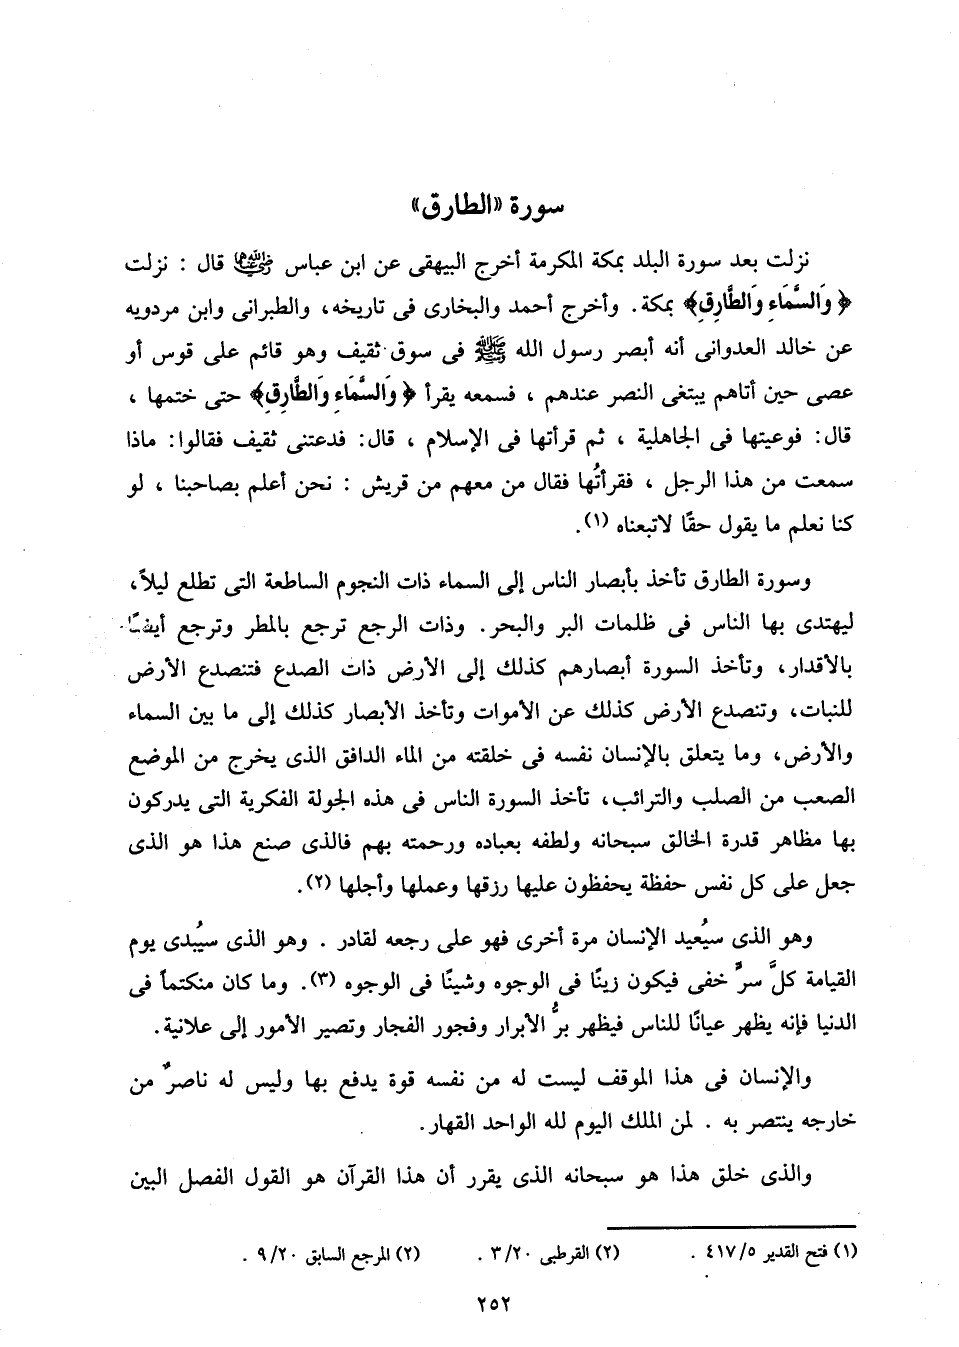 سورة «الطارق»
نزلت بعد سورة البلد بمكة المكرمة أخرج البيهقى عن ابن عباس رضي الله عنهما قال : نزلت
﴿ وَالسَّمَاءِ وَالطَّارِقِ﴾ بمكة. وأخرج أحمد والبخارى فى تاريخه، والطبرانى وابن مردويه
عن خالد العدوانى أنه أبصر رسول الله ﷺ فى سوق ثقيف وهو قائم على قوس أو
عصى حين أتاهم يبتغى النصر عندهم ، فسمعه يقرأ ﴿ وَالسَّمَاءِ وَالطَّارِقِ﴾ حتى ختمها ،
قال: فوعيتها فى الجاهلية ، ثم قرأتها فى الإسلام ، قال: فدعتنى ثقيف فقالوا: ماذا
سمعت من هذا الرجل ، فقرأتُها فقال من معهم من قريش : نحن أعلم بصاحبنا ، لو
كنا نعلم ما يقول حقًا لاتبعناه (١).
وسورة الطارق تأخذ بأبصار الناس إلى السماء ذات النجوم الساطعة التى تطلع ليلاً،
ليهتدى بها الناس فى ظلمات البر والبحر. وذات الرجع ترجع بالمطر وترجع أيضًا
بالأقدار، وتأخذ السورة أبصارهم كذلك إلى الأرض ذات الصدع فتنصدع الأرض
للنبات، وتنصدع الأرض كذلك عن الأموات وتأخذ الأبصار كذلك إلى ما بين السماء
والأرض، وما يتعلق بالإنسان نفسه فى خلقته من الماء الدافق الذى يخرج من الموضع
الصعب من الصلب والترائب، تأخذ السورة الناس فى هذه الجولة الفكرية التى يدركون
بها مظاهر قدرة الخالق سبحانه ولطفه بعباده ورحمته بهم فالذى صنع هذا هو الذى
جعل على كل نفس حفظة يحفظون عليها رزقها وعملها وأجلها (٢).
وهو الذى سيُعيد الإنسان مرة أخرى فهو على رجعه لقادر . وهو الذى سيُبدى يوم
القيامة كلَّ سرٍّ خفى فيكون زينًا فى الوجوه وشينًا فى الوجوه (٣). وما كان منكتماً فى
الدنيا فإنه يظهر عيانًا للناس فيظهر برُّ الأبرار وفجور الفجار وتصير الأمور إلى علانية.
والإنسان فى هذا الموقف ليست له من نفسه قوة يدفع بها وليس له ناصرٌ من
خارجه ينتصر به . لمن الملك اليوم لله الواحد القهار.
والذى خلق هذا هو سبحانه الذى يقرر أن هذا القرآن هو القول الفصل البين
(١) فتح القدير ٤١٧/٥ . (٢) القرطبى ٣/٢٠ . (٢) المرجع السابق ٩/٢٠ .
٢٥٢